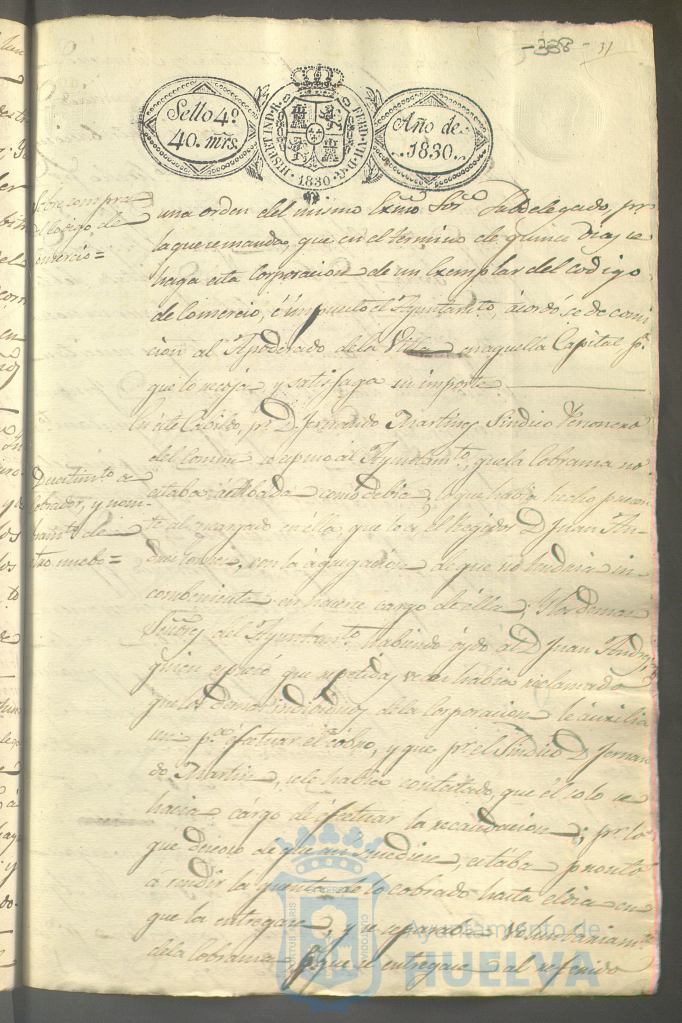 -338- 31
Sello 4º
40. mrs.
HISPET IND. R. FERD. VII. D. G.
1830
Año de
1830.
Sobre compra
el Codigo de
comercio=
una orden del mismo Exmo Sor Subdelegado, pr.
la que se manda, que en el termino de quince dias se
haga esta Corporacion de un Exemplar del codigo
de Comercio, é impuesto el Ayuntamto. acordó se de comi
cion al Apoderado de la Villa en aquella Capital pa.
que lo recoja y satisfaga su importe
En este Cabildo, pr. D. Fernando Martinez Sindico Personero
del Comun se espuso al Ayuntamto., que la Cobranza no
estaba como debia, lo que habia hecho presen
te al encargado en ella, que lo es el Regidor D. Juan An-
con la agregacion de que no tendria in-
combeniente en hacerse cargo de ella; Y los demas
Señores del Ayuntamto. habiendo oydo al D. Juan Andres
quien espresó que repetidas veces habia reclamado
que los demas individuos de la corporacion le áuxilia
sen pa. efectuar el cobro, y que pr. el Sindico D. Fernan
do Martin, se le habia contestado, que él solo se
hacia cárgo de éfectuar la recaudacion; pr. lo
que deseoso de que estaba pronto
a rendir la quenta de lo cobrado hasta el dia en
que la entregare, y se separaba voluntariamte.
dela Cobranza, pa. que se entregase al referido
cobrador, y nom-
bramto. de
otro nuebo=
Ayuntamiento de
HUELVA